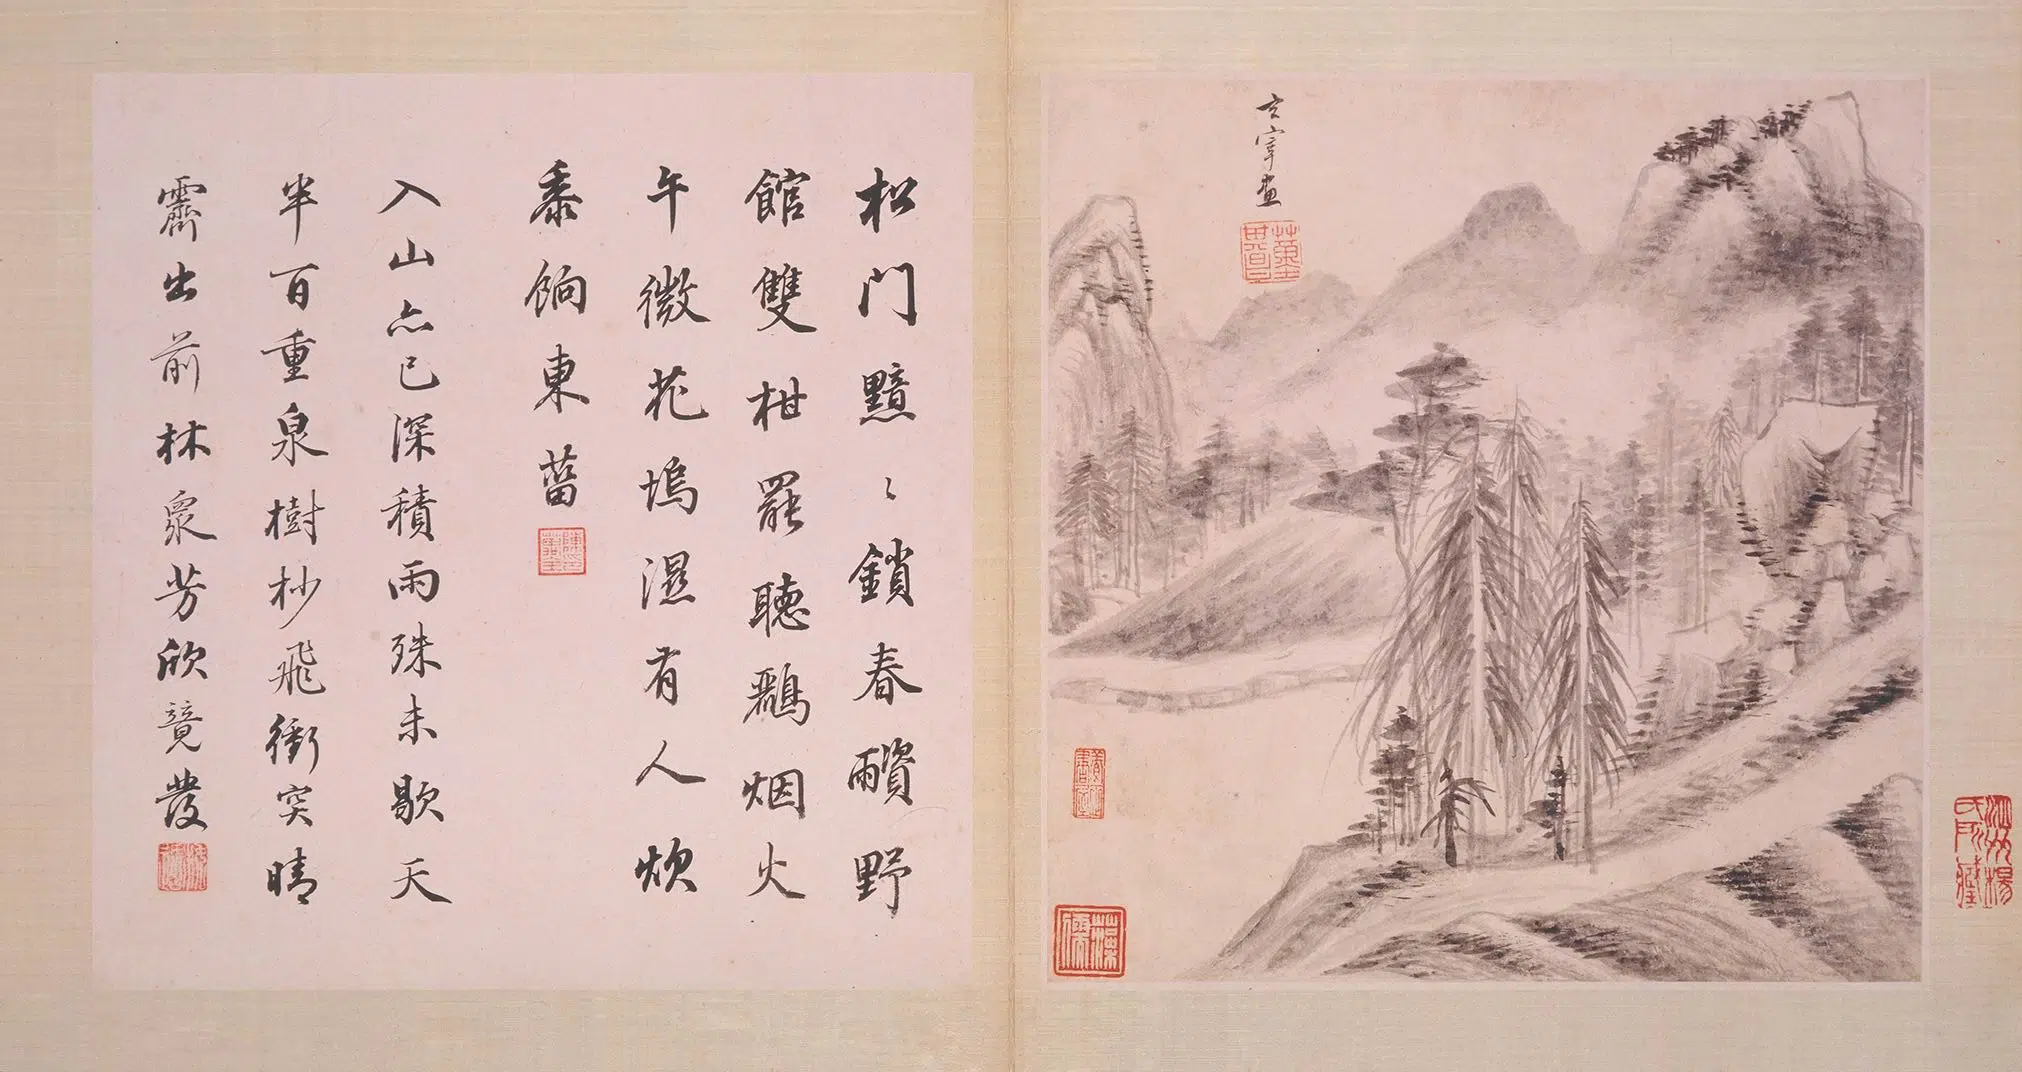 玄宰画
松门黯〻鎖春野
館雙柑罷聽鸝烟火
午微花塢濕有人炊
黍餉東菑
入山亦已深積雨殊未歇天
半百重泉樹杪飛衝突晴
霽出前林衆芳欣競發
藻儒